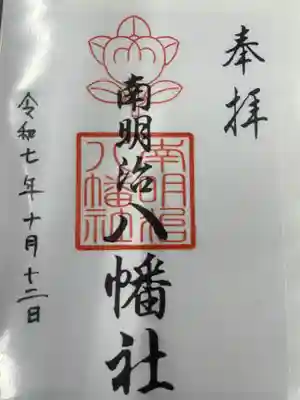 奉拝
南明治八幡社
令和七年十月十二日
南明治
八幡社